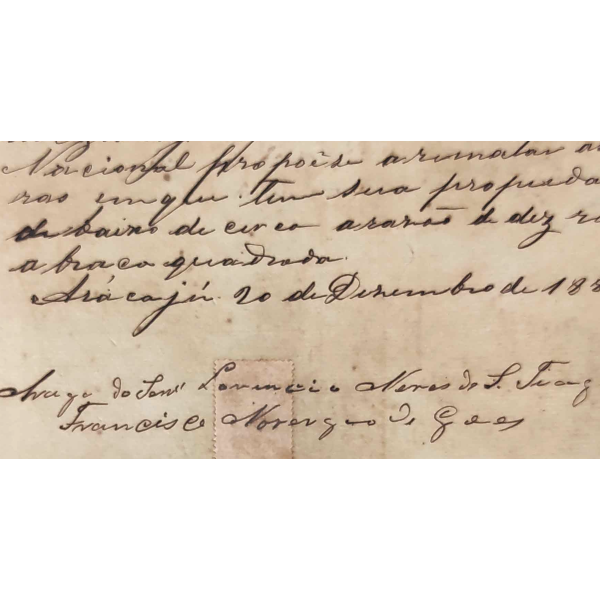 Nacional propoẽse arematar a
rao in que tem sua propieda
de baixo de cerco a razaõ de dez r
a braca quadrada.
Arácajú 20 de Dezembro de 188
Arugo do Senr Lourencio Neves de S. Tiag
Francisco de Goes